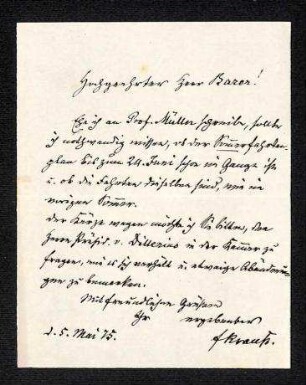 Hochgeehrter Herr Baron!
Ehe ich an Prof. Müller schreibe, sollte
ich nothwendig wissen, ob der Sommerfahrten-
plan bis zum 24. Juni schon im Gange ist
u. ob die Fahrten dieselben sind, wie im
vorigen Sommer.
Der Kürze wegen möchte ich Sie bitten, den
Herrn Präsid. v. in der Kammer zu
fragen, wie es sich verhält u. etwaige Abänderun-
gen zu bemerken.
Mit freundlichen Grüßen
Ihr ergebenster
d. 5. Mai 75. Krauß.